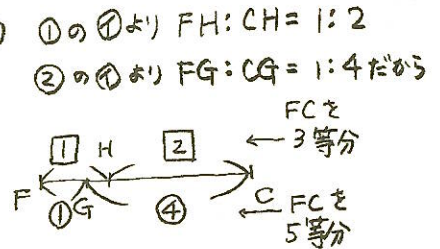 ) ①の㋑より FH:CH=1:2
②の㋑より FG:CG=1:4だから
FCを
1 H 2 ← 3等分
F ① G ④ C ← FCを
5等分